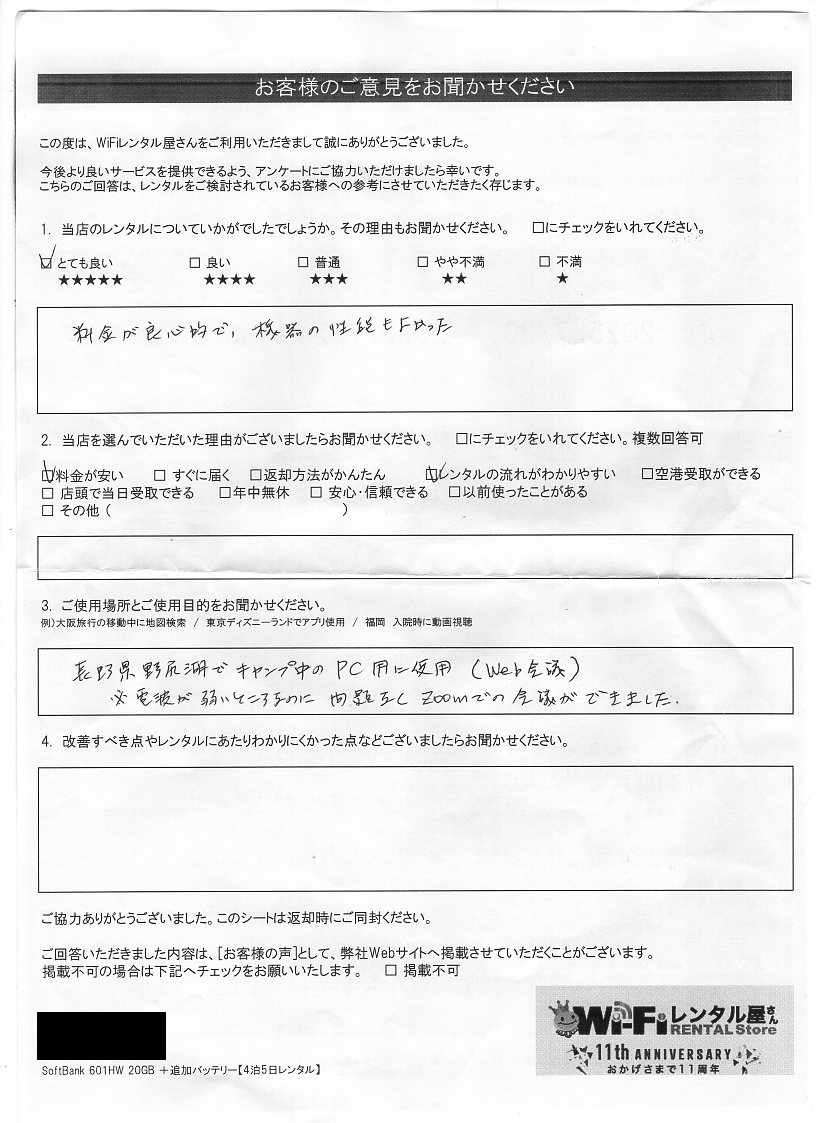 お客様のご意見をお聞かせください
この度は、WiFiレンタル屋さんをご利用いただきまして誠にありがとうございました。
今後より良いサービスを提供できるよう、アンケートにご協力いただけましたら幸いです。
こちらのご回答は、レンタルをご検討されているお客様への参考にさせていただきたく存じます。
1. 当店のレンタルについていかがでしたでしょうか。その理由もお聞かせください。 □にチェックをいれてください。
☑ とても良い □ 良い □ 普通 □ やや不満 □ 不満
★★★★★ ★★★★ ★★★ ★★ ★
料金が良心的で、機器の性能もよかった
2. 当店を選んでいただいた理由がございましたらお聞かせください。 □にチェックをいれてください。複数回答可
☑料金が安い □ すぐに届く □返却方法がかんたん ☑レンタルの流れがわかりやすい □空港受取ができる
□ 店頭で当日受取できる □年中無休 □ 安心・信頼できる □以前使ったことがある
□ その他 ( )
3. ご使用場所とご使用目的をお聞かせください。
例)大阪旅行の移動中に地図検索 / 東京ディズニーランドでアプリ使用 / 福岡 入院時に動画視聴
長野県野尻湖でキャンプ中のPC用に使用 (Web会議)
※電波が弱いところなのに問題なくZoomでの会議ができました.
4. 改善すべき点やレンタルにあたりわかりにくかった点などございましたらお聞かせください。
ご協力ありがとうございました。このシートは返却時にご同封ください。
ご回答いただきました内容は、[お客様の声]として、弊社Webサイトへ掲載させていただくことがございます。
掲載不可の場合は下記へチェックをお願いいたします。 □ 掲載不可
Wi-Fiレンタル屋さん
RENTAL Store
11th ANNIVERSARY
おかげさまで11周年
SoftBank 601HW 20GB +追加バッテリー【4泊5日レンタル】